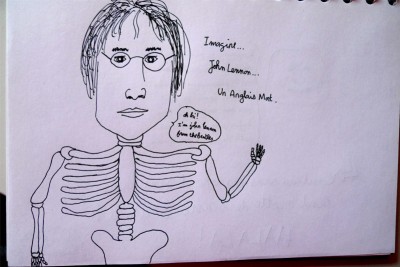 Imagine...
John Lennon...
Un Anglais Mort.
oh hi!
I'm john lennon
from the beatles